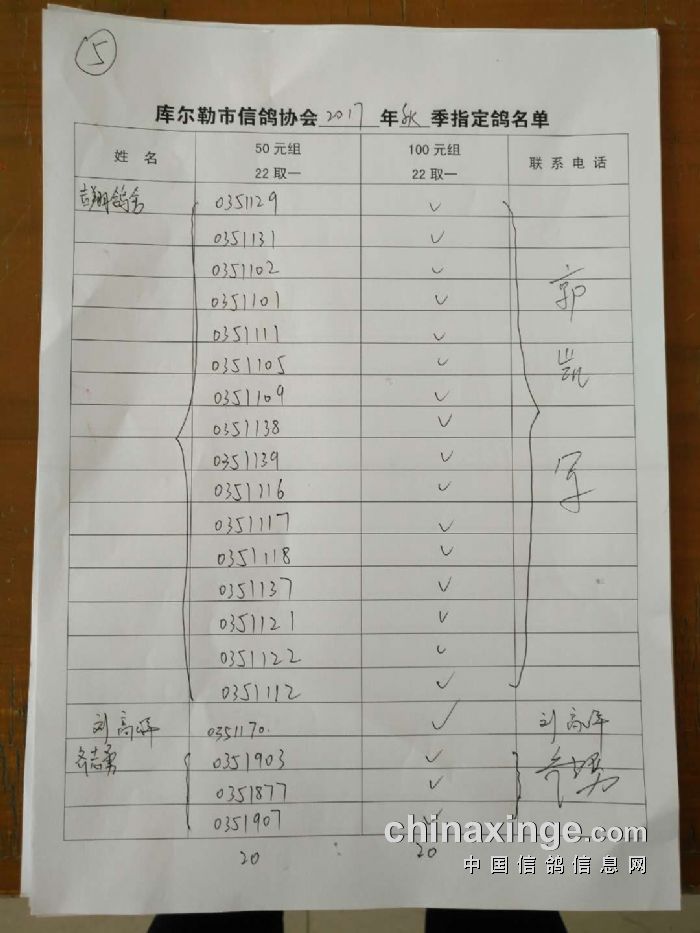 5
库尔勒市信鸽协会 2017 年 秋 季指定鸽名单
姓 名 50元组 22取一 100元组 22取一 联系电话
吉翔鸽舍 0351129 ✓
0351131 ✓
0351102 ✓
0351101 ✓
0351111 ✓
0351105 ✓
0351109 ✓
0351138 ✓
0351139 ✓
0351116 ✓
0351117 ✓
0351118 ✓
0351137 ✓
0351121 ✓
0351122 ✓
0351112 ✓
郭
凯
军
刘高峰 0351170. ✓ 刘高峰
齐志勇 0351903 ✓
0351877 ✓
0351907 ✓
20 : 20
chinaxinge.com
中国信鸽信息网